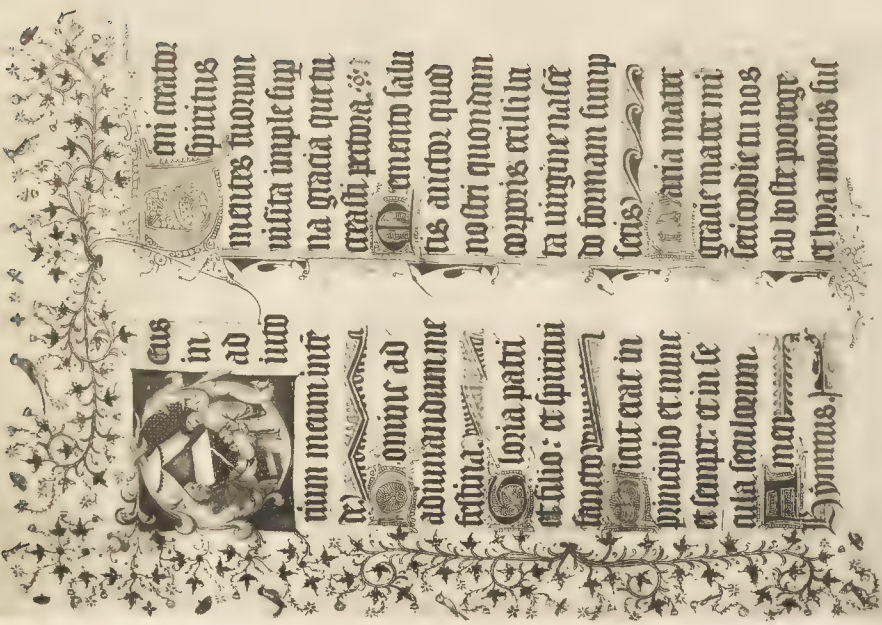 Deus
in
ad
iuto
rium meum inte
de
Domine ad
adiuuandum me
festina
Gloria patri
et filio: et spiritui
sancto
Sicut erat in
principio et nunc
et semper: et in se
cula seculorum.
Amen
Hymnus
Veni creator
spiritus
mentes tuorum
visita imple sup
na gracia que tu
creasti pectora
Memento salu
tis auctor quod
nostri quondam
corporis ex illiba
ta virgine nasce
do formam sump
seris
Maria mater
gracie mater mi
sericordie tu nos
ab hoste protege
et hora mortis sus